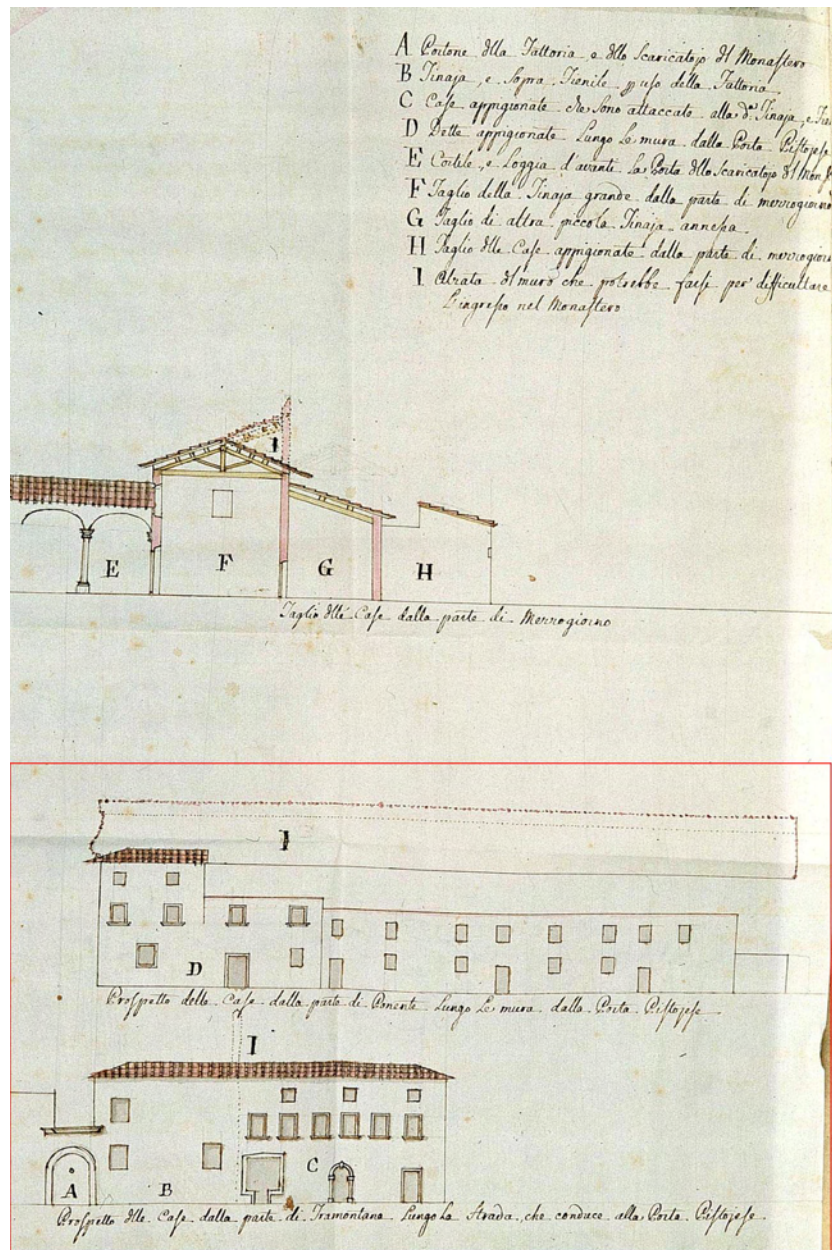 A Portone dlla Fattoria, e dllo Scaricatojo dl Monastero
B Tinaja, e Sopra Fienile p uso della Fattoria
C Case appigionate che sono attaccate alla d.ª Tinaja, e
D Dette appigionate Lungo Le mura dalla Porta Pistojese
E Cortile, e Loggia d'avanti la Porta dllo Scaricatojo dl Mon
F Taglio della Tinaja grande dalla parte di merrogiorno
G Taglio di altra piccola Tinaja annessa
H Taglio dlle Case appigionate dalla parte di merrogiorn
I Alzata dl muro che potrebbe farsi per difficultare
L'ingresso nel Monastero
I
E F G H
Taglio dlle Case dalla parte di Merrogiorno
I
D
Prospetto delle Case dalla parte di Ponente Lungo Le mura dalla Porta Pistojese
I
A B C
Prospetto dlle Case dalla parte di Tramontana Lungo La Strada, che conduce alla Porta Pistojese